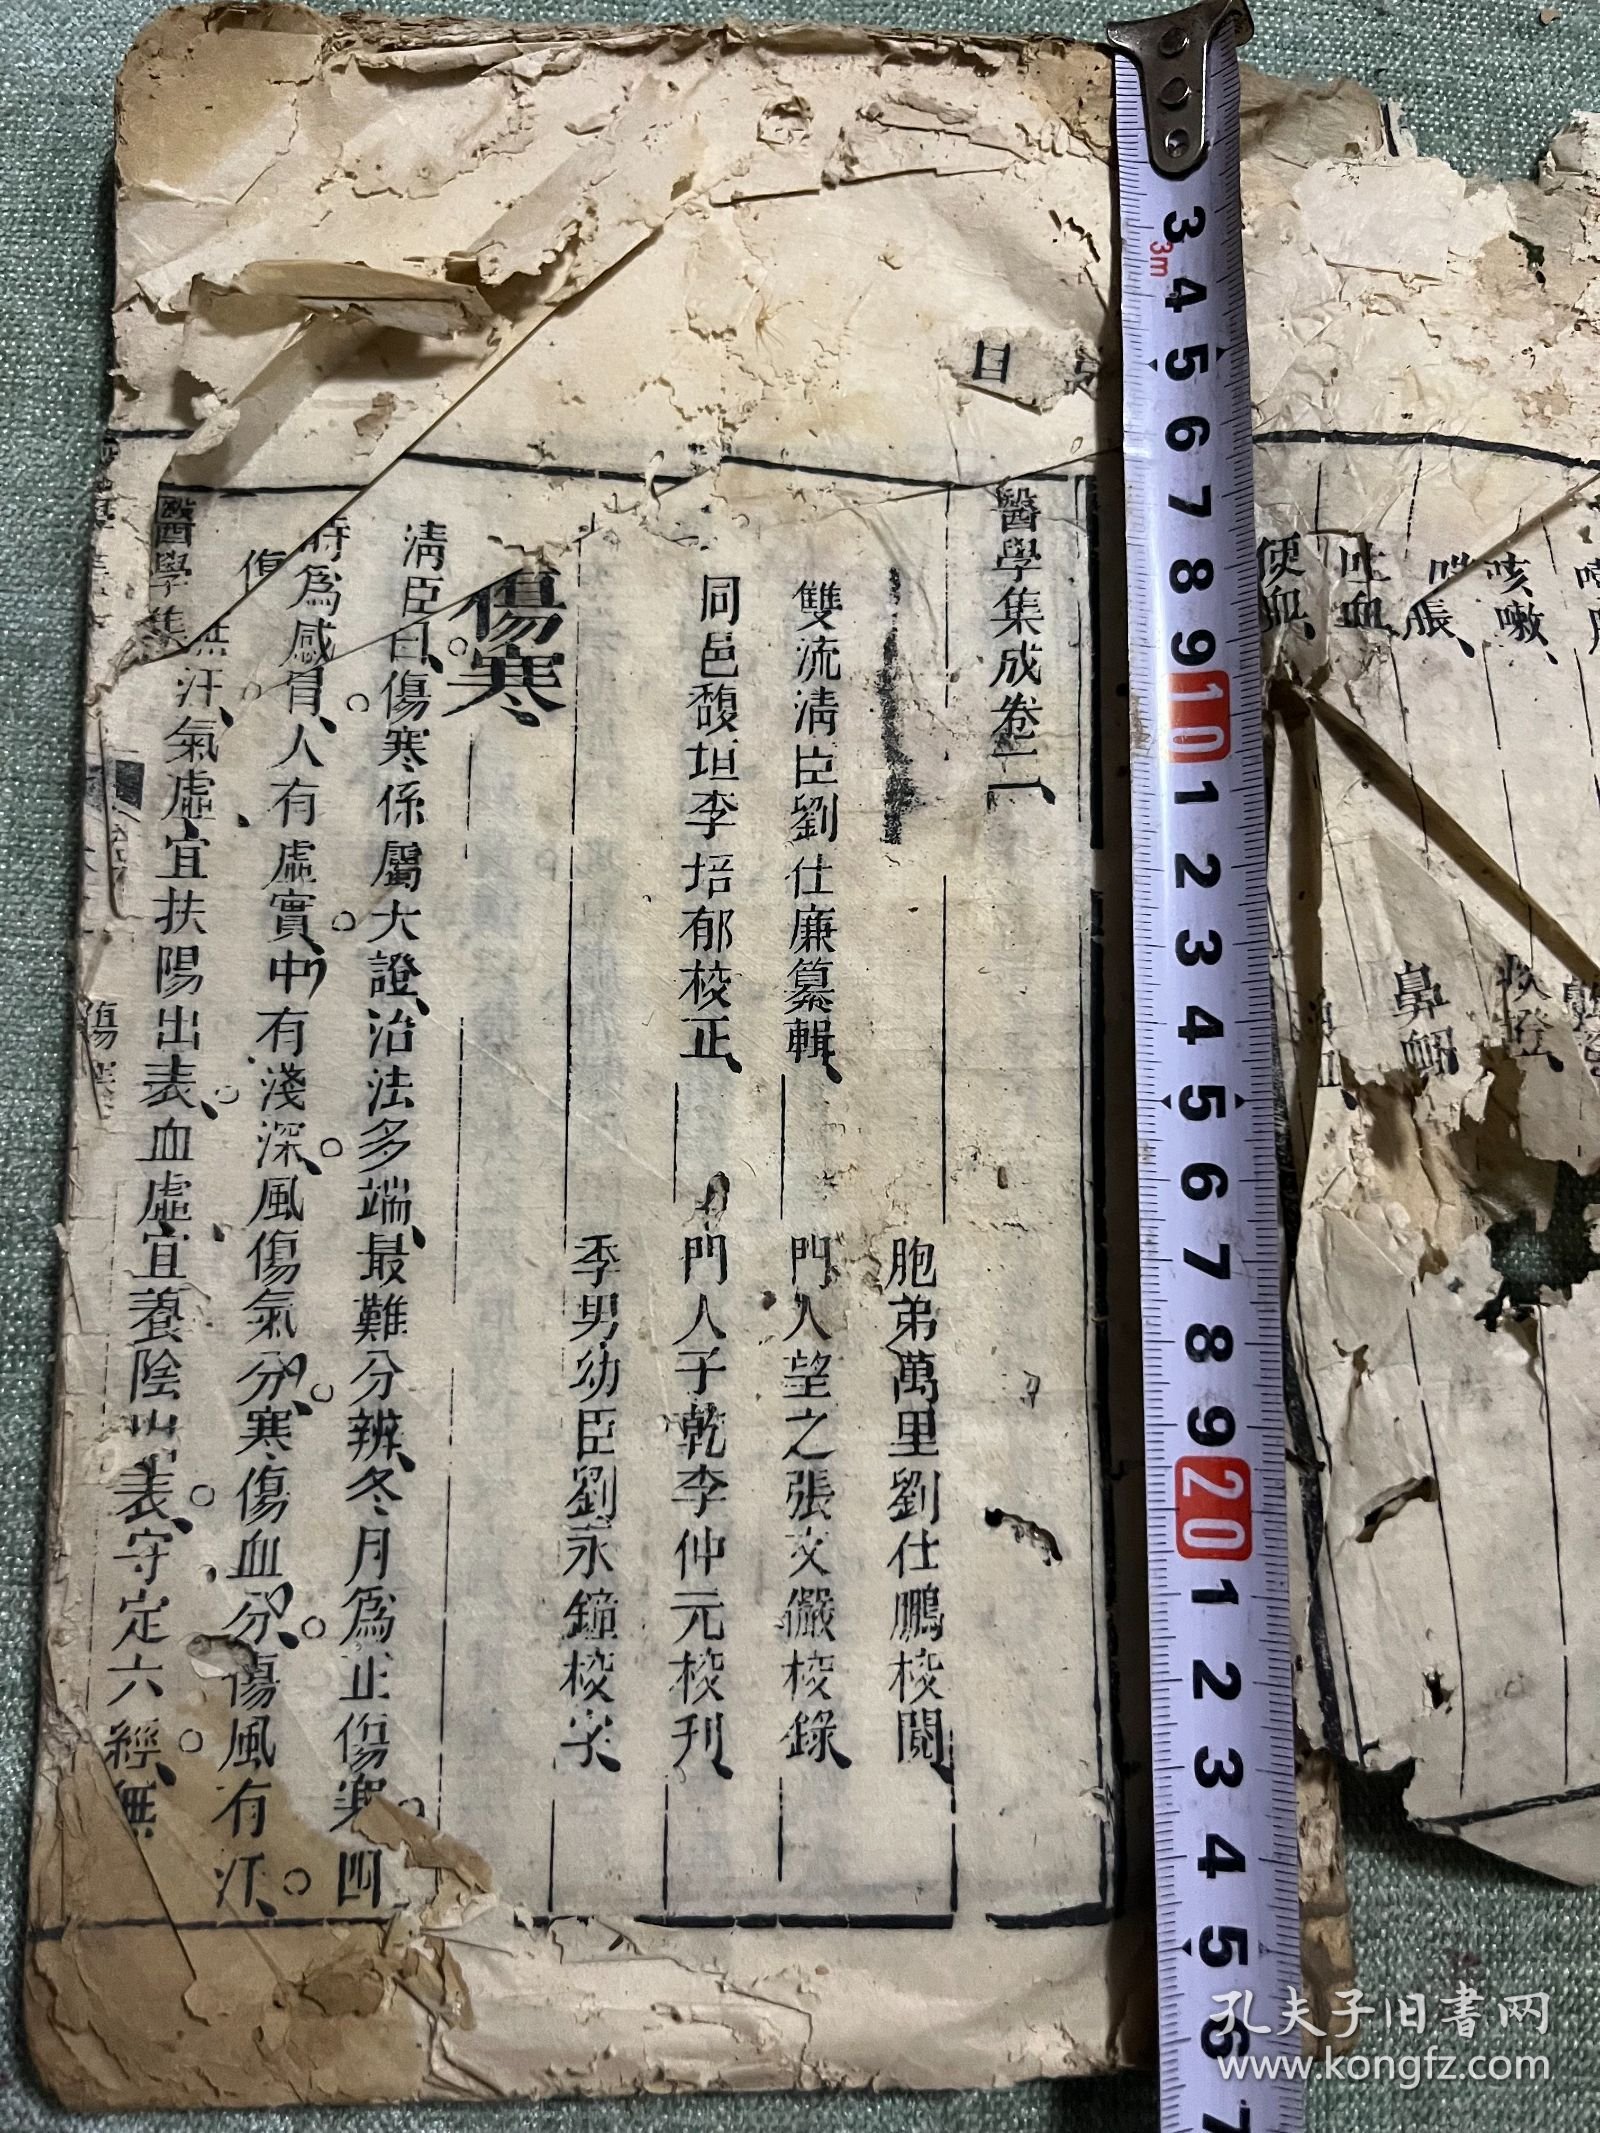 醫學集成卷二、
胞弟萬里劉仕鵬校閱、
雙流淸臣劉仕廉纂輯、 門人望之張文儼校錄、
同邑馥垣李培郁校正、 門人子乾李仲元校刋、
季男幼臣劉永鐘校字、
傷寒、
淸臣曰、傷寒係屬大證、治法多端、最難分辨、冬月爲正傷寒、四
時爲感冒、人有虛實、中有淺深、風傷氣分、寒傷血分、傷風有汗、
傷
無汗、氣虛宜扶陽出表、血虛宜養陰出表、守定六經、無
醫學集
傷寒
目
咳嗽、
脹、
吐血、
便血、
鼻衄、
3 4 5 6 7 8 9 10 1 2 3 4 5 6 7 8 9 20 1 2 3 4 5 6 7
3m
孔夫子旧書网
www.kongfz.com